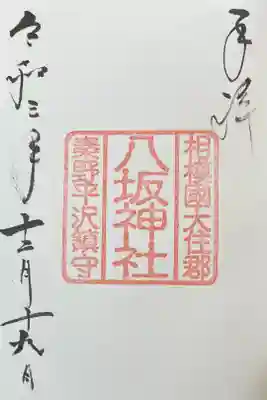 奉拝
相模國大住郡
八坂神社
秦野平沢鎮守
令和三年十二月十九日